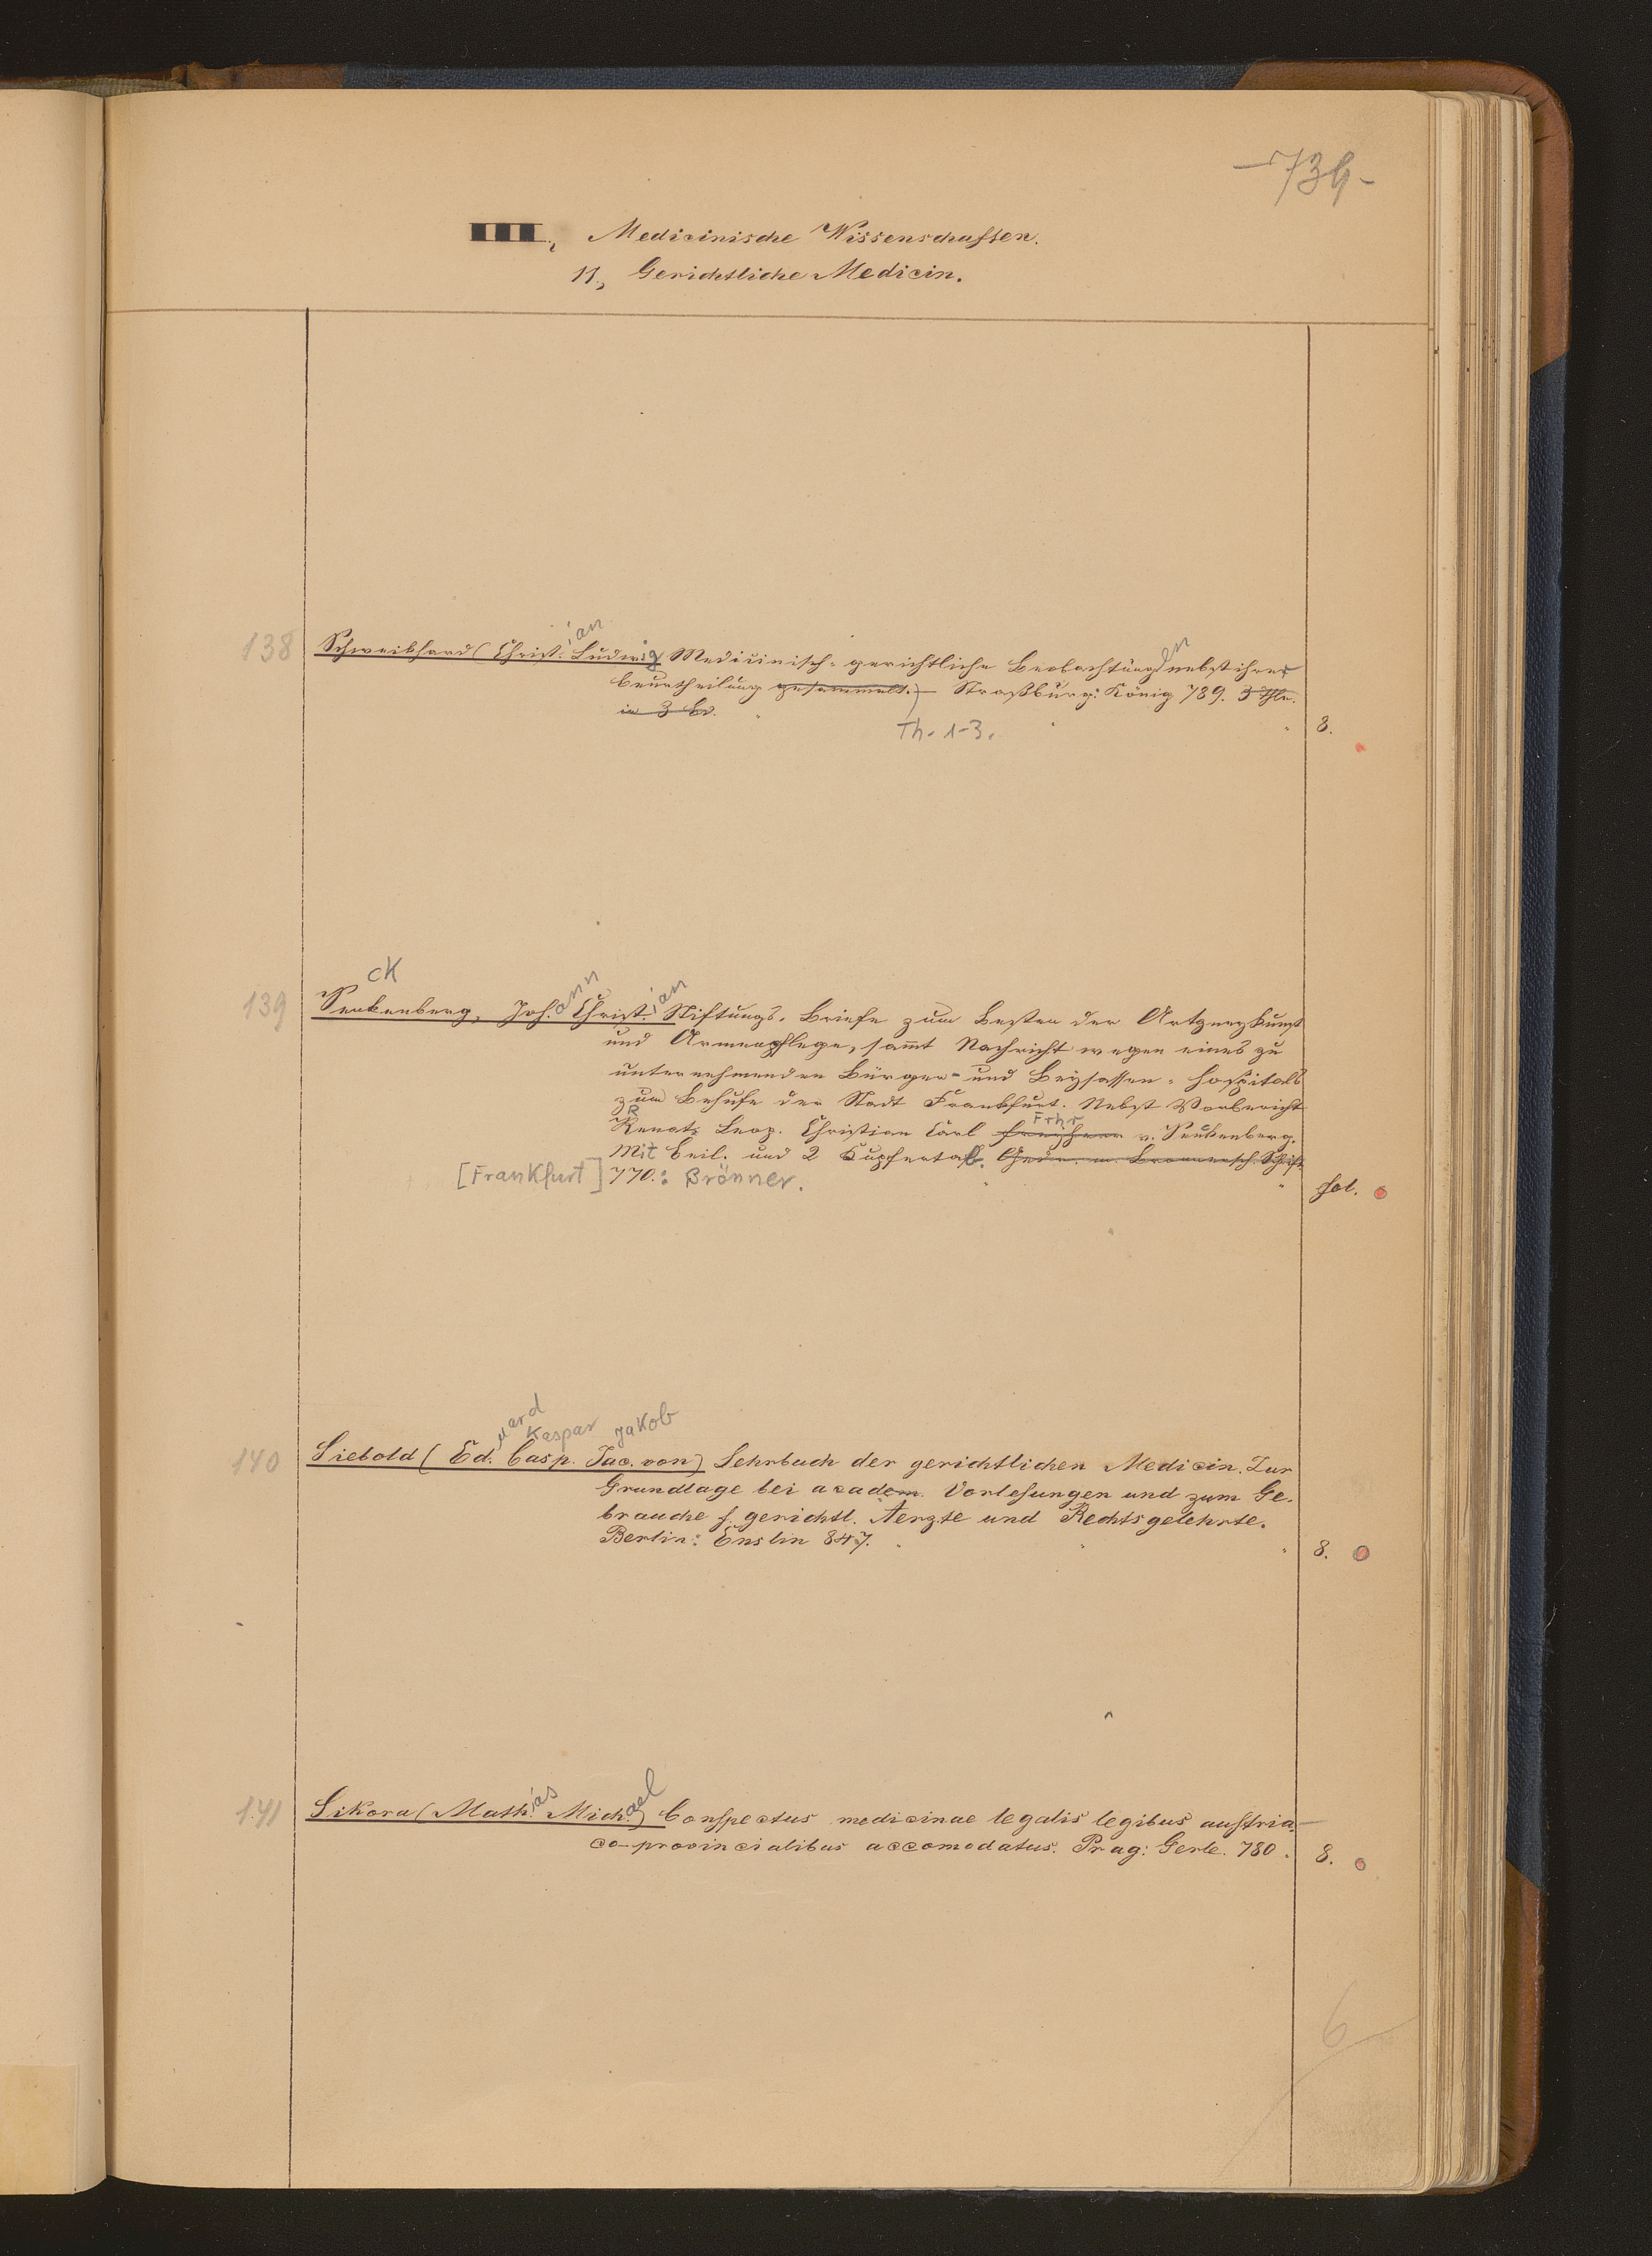 -739-
III., Medicinische Wissenschaften.
11., Gerichtliche Medicin.
138 Schweikhard (Christ.ian Ludwig Medicinisch-gerichtliche Beobachtungen nebst ihrer
Beurtheilung gesammelt.) – Straßburg: König 789. 3 Thle.
in 3 Bd.
Th. 1-3. 8.
ck
139 Senkenberg, Joh.ann Christ.ian Stiftungs-Briefe zum Besten der Artzneykunst
und Armenpflege, sam̄t Nachricht wegen eines zu
unternehmenden Bürger- und Beysassen-Hospitals
zum Behufe der Stadt Frankfurt. Nebst Vorbericht
R Frhr
Renat. Leop. Christian Carl Freyherr v. Senckenberg.
Mit Beil. und 2 Kupfertaf. Gedr. m. Brönnersch. Schrift
[Frankfurt] 770.: Brönner. fol.
uard Kaspar Jakob
140 Siebold (Ed. Casp. Jac. von) Lehrbuch der gerichtlichen Medicin. Zur
Grundlage bei academ. Vorlesungen und zum Ge-
brauche f. gerichtl. Aerzte und Rechtsgelehrte.
Berlin: Enslin 847. 8.
141 Sikora (Math.ias Mich.ael) Conspectus medicinae legalis legibus austria-
co-provincialibus accomodatus. Prag: Gerle. 780. 8.
6